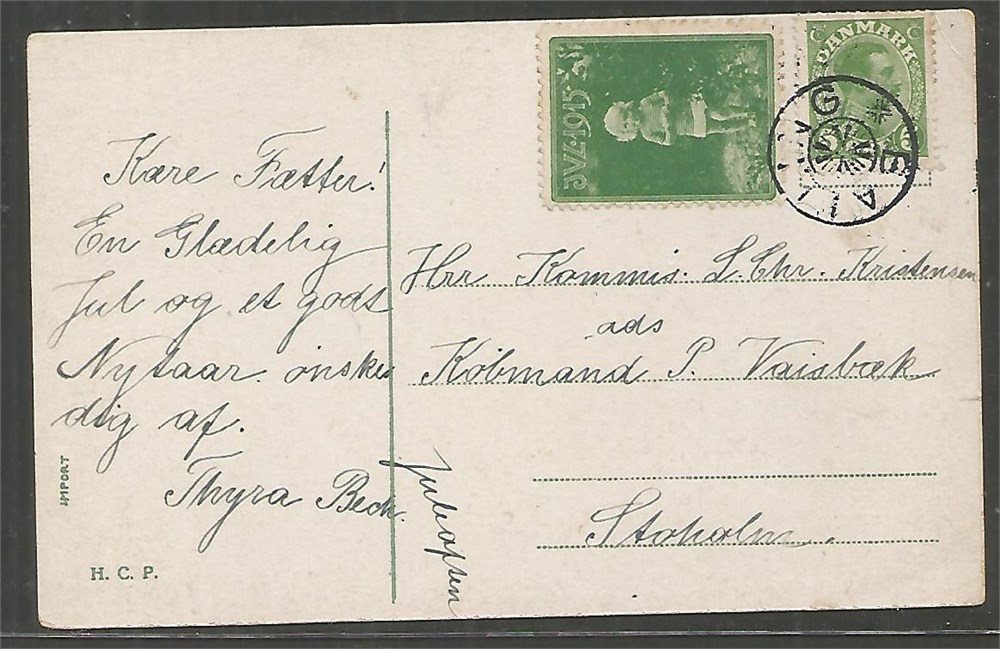 Kære Fætter!
En Glædelig
Jul og et godt
Nytaar ønskes
dig af.
Thyra Beck.
IMPORT
H. C. P.
JUL·1915
DANMARK
5
BALLING
Hrr Kommis. L. Chr. Kristensen
ads
Købmand P. Vaisbæk
Stoholm.
Juleaften